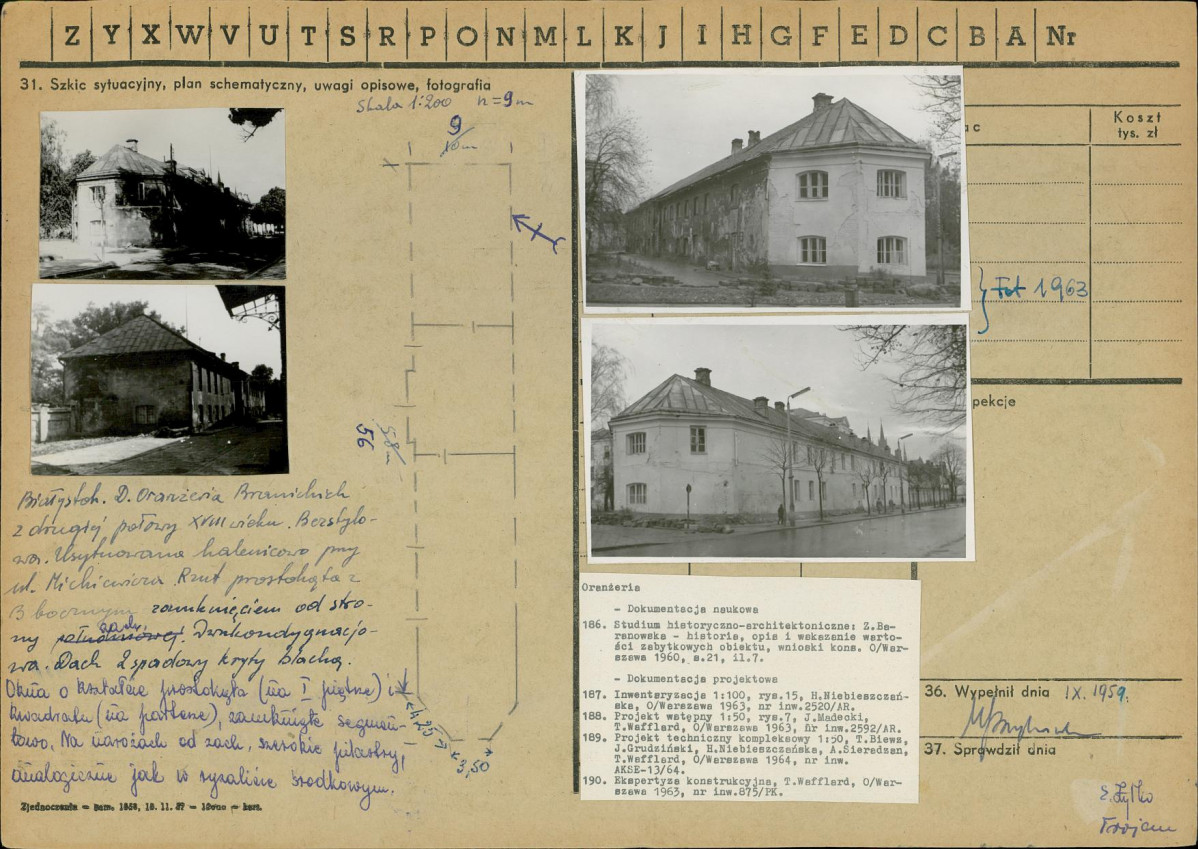 Z Y X W V U T S R P O N M L K J I H G F E D C B A Nr
31. Szkic sytuacyjny, plan schematyczny, uwagi opisowe, fotografia
Skala 1:200 n=9m
9
10m
56
58m
4,25
3,50
Białystok. D. Oranżeria Branickich
z drugiej połowy XVIII wieku. Bezstylo-
wa. Usytuowana kalenicowo przy
ul. Mickiewicza. Rzut prostokąta z
3 bocznym zamknięciem od stro-
ny południowej zach. Dwukondygnacjo-
wa. Dach 2 spadowy kryty blachą.
Okna o kształcie prostokąta (na I piętrze) i
kwadratu (na parterze), zamknięte segmen-
towo. Na narożach od zach. szerokie pilastry,
analogicznie jak w ryzalicie środkowym.
Zjednoczenie
ac
Koszt
tys. zł
Fot 1963
pekcje
Oranżeria
- Dokumentacja naukowa
186. Studium historyczno-architektoniczne: Z.Ba-
ranowska - historia, opis i wskazanie warto-
ści zabytkowych obiektu, wnioski kons. O/War-
szawa 1960, s.21, il.7.
- Dokumentacja projektowa
187. Inwentaryzacja 1:100, rys.15, H.Niebieszczań-
ska, O/Warszawa 1963, nr inw.2520/AR.
188. Projekt wstępny 1:50, rys.7, J.Madecki,
T.Wafflard, O/Warszawa 1963, nr inw.2592/AR.
189. Projekt techniczny kompleksowy 1:50, T.Biewz,
J.Grudziński, H.Niebieszczańska, A.Sieredzan,
T.Wafflard, O/Warszawa 1964, nr inw.
AKSE-13/64.
190. Ekspertyza konstrukcyjna, T.Wafflard, O/War-
szawa 1963, nr inw.875/PK.
36. Wypełnił dnia IX.1959.
37. Sprawdził dnia
Trojan